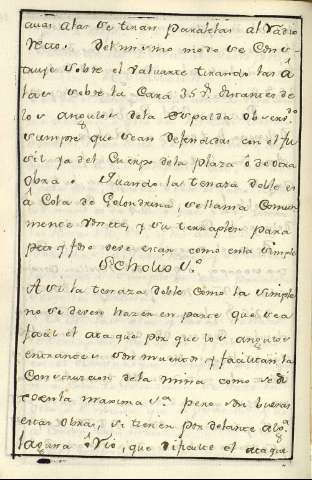 alas se tiran paralelas al radio
recto. Del mismo modo se cons-
truye sobre el valuarte tirando las
alas sobre la Cara 35 distantes de
los angulos dela Espalda observ.do
siempre que sean defendidas con el fu
sil ya del Cuerpo dela plaza ó de otra
obra. Quando la tenaza doble es
á Cola de Golondrina, se llama Comun
mente Bonete, y su terraplen para
peto y foso se describen como en la simple
Scholio V.º
Assi la tenaza doble como la simple
no se deven hazer en parte que sea
facil el ataque por que los angulos
entrantes son muertos y facilitan la
Construccion dela mina como se di
ce en la maxima pero son buenas
estas obras, si tienen por delante
laguna ó rio, que dificulte el ataque